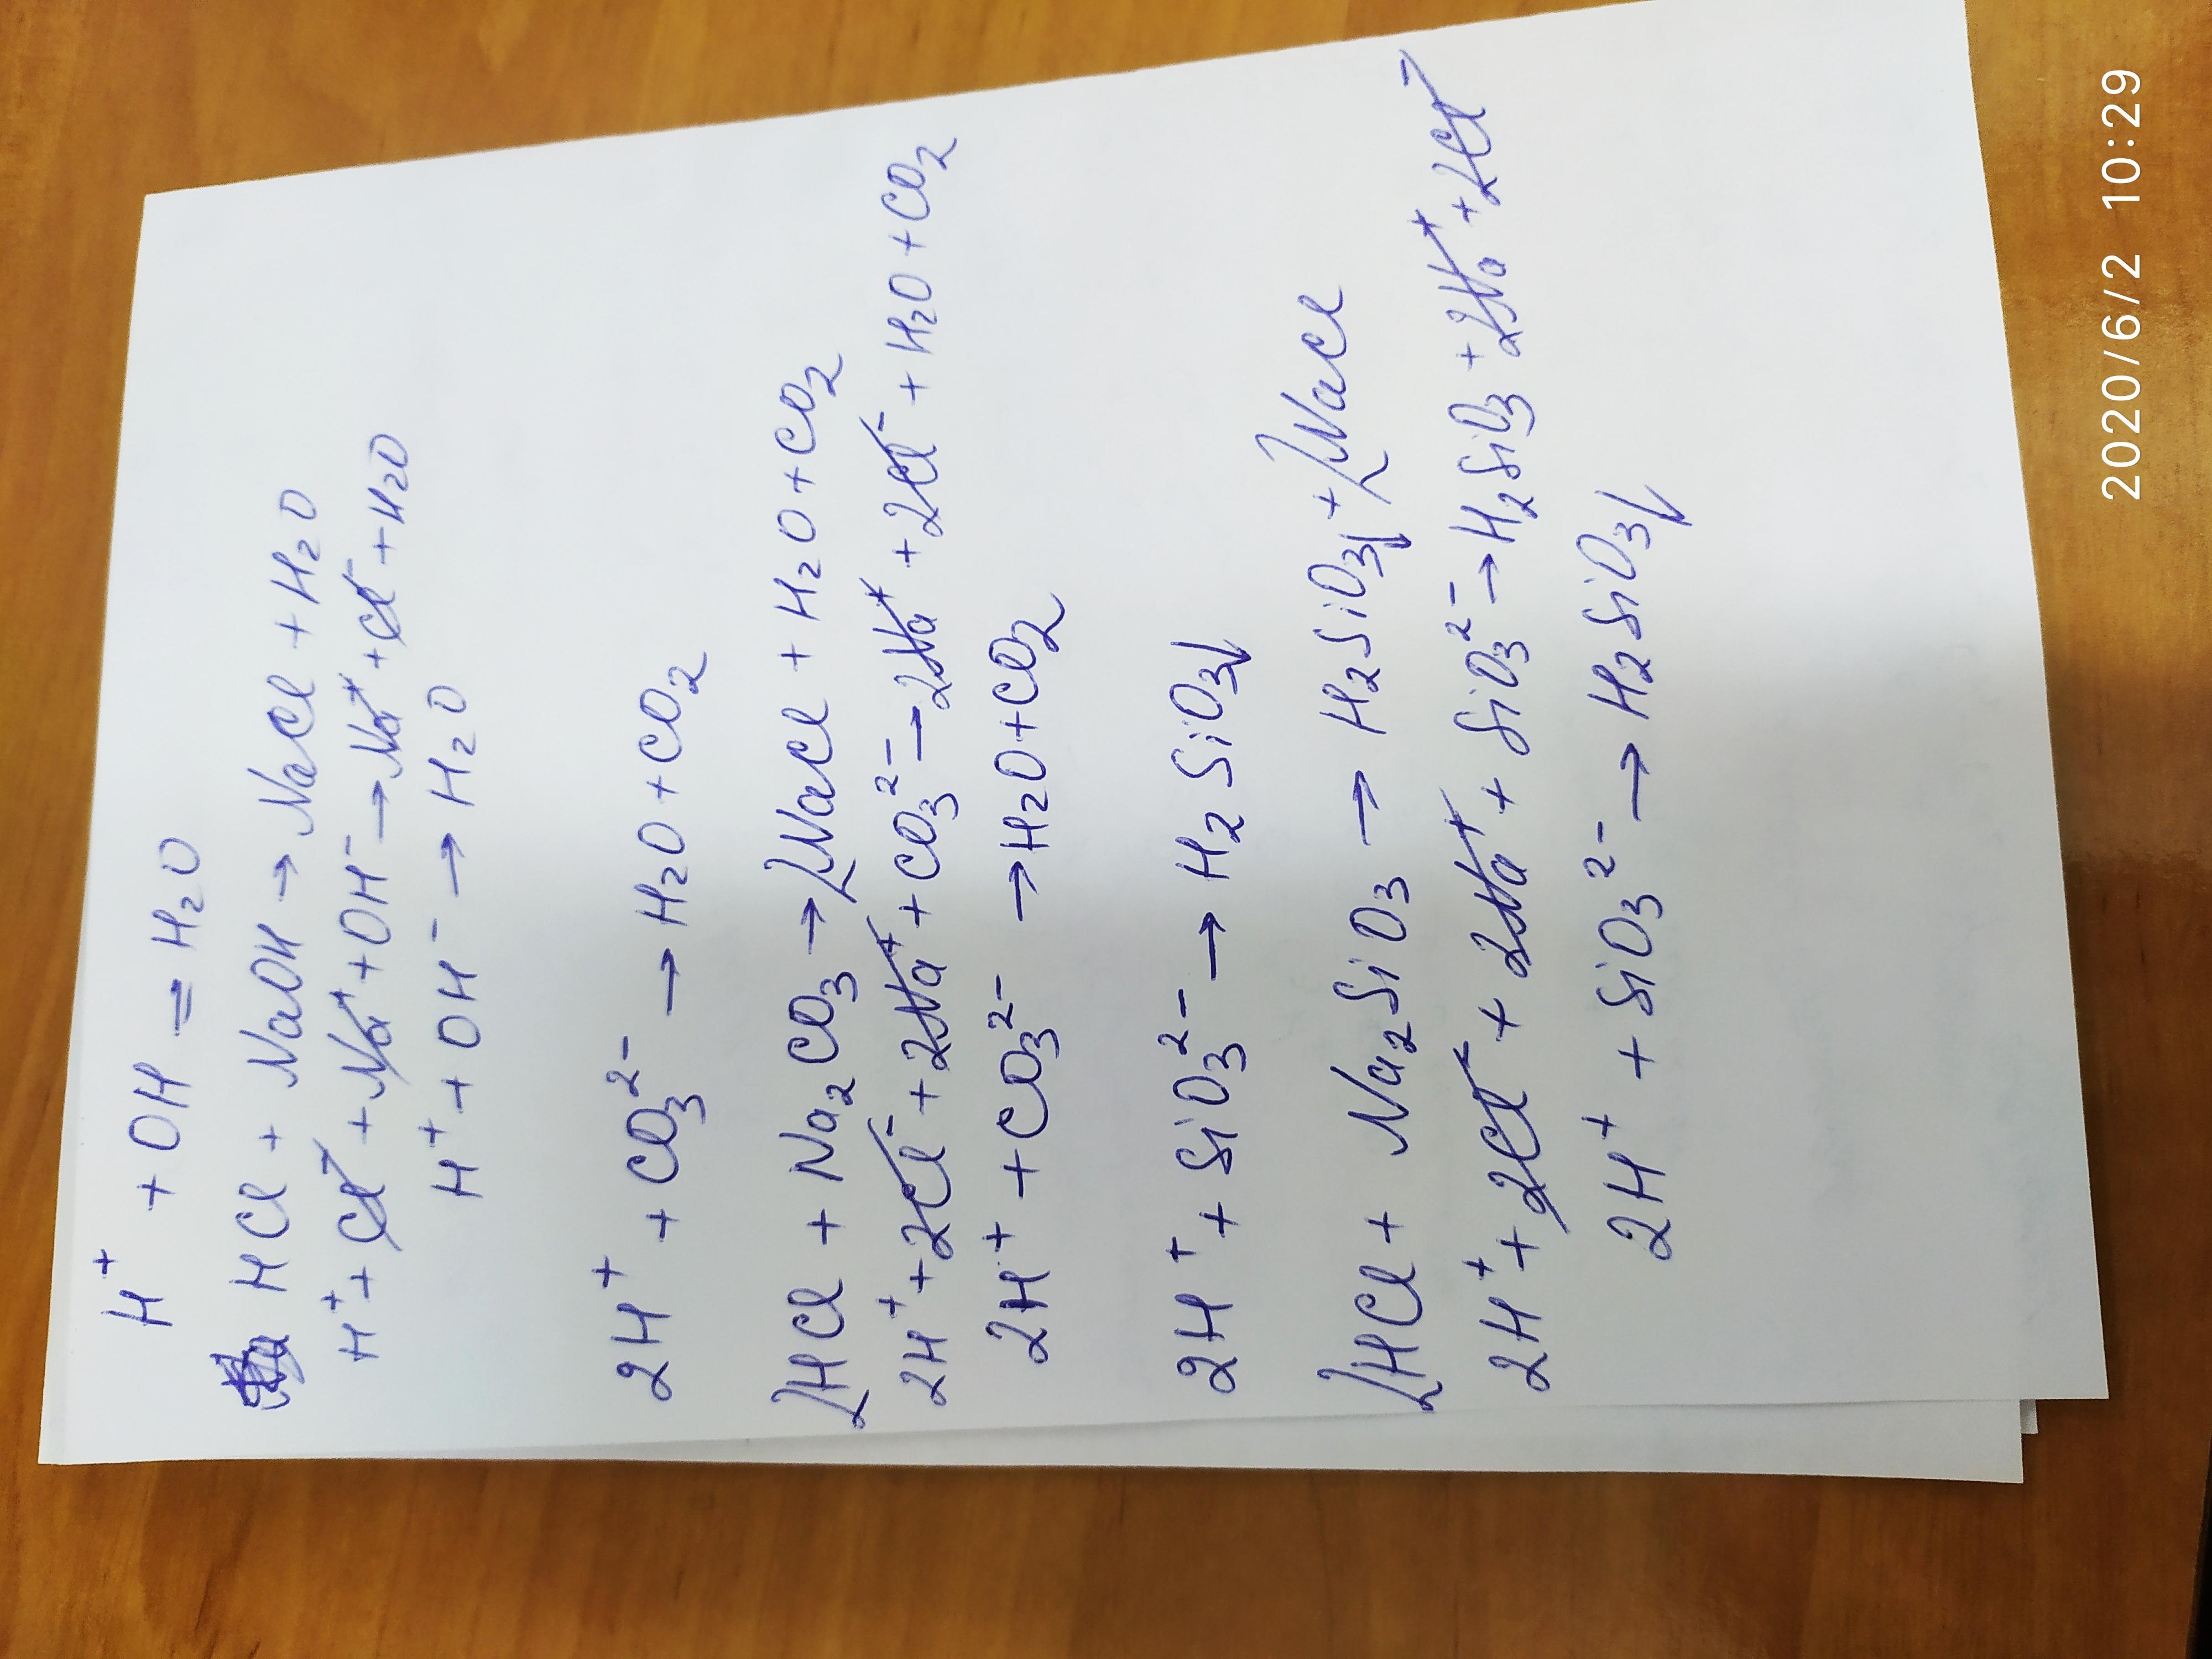 H⁺ + OH = H₂O
HCl + NaOH → NaCl + H₂O
H⁺ + Cl⁻ + Na⁺ + OH⁻ → Na⁺ + Cl⁻ + H₂O
H⁺ + OH⁻ → H₂O
2H⁺ + CO₃²⁻ → H₂O + CO₂
2HCl + Na₂CO₃ → 2NaCl + H₂O + CO₂
2H⁺ + 2Cl⁻ + 2Na⁺ + CO₃²⁻ → 2Na⁺ + 2Cl⁻ + H₂O + CO₂
2H⁺ + CO₃²⁻ → H₂O + CO₂
2H⁺ + SiO₃²⁻ → H₂SiO₃↓
2HCl + Na₂SiO₃ → H₂SiO₃↓ + 2NaCl
2H⁺ + 2Cl⁻ + 2Na⁺ + SiO₃²⁻ → H₂SiO₃ + 2Na⁺ + 2Cl⁻
2H⁺ + SiO₃²⁻ → H₂SiO₃↓
2020/6/2 10:29